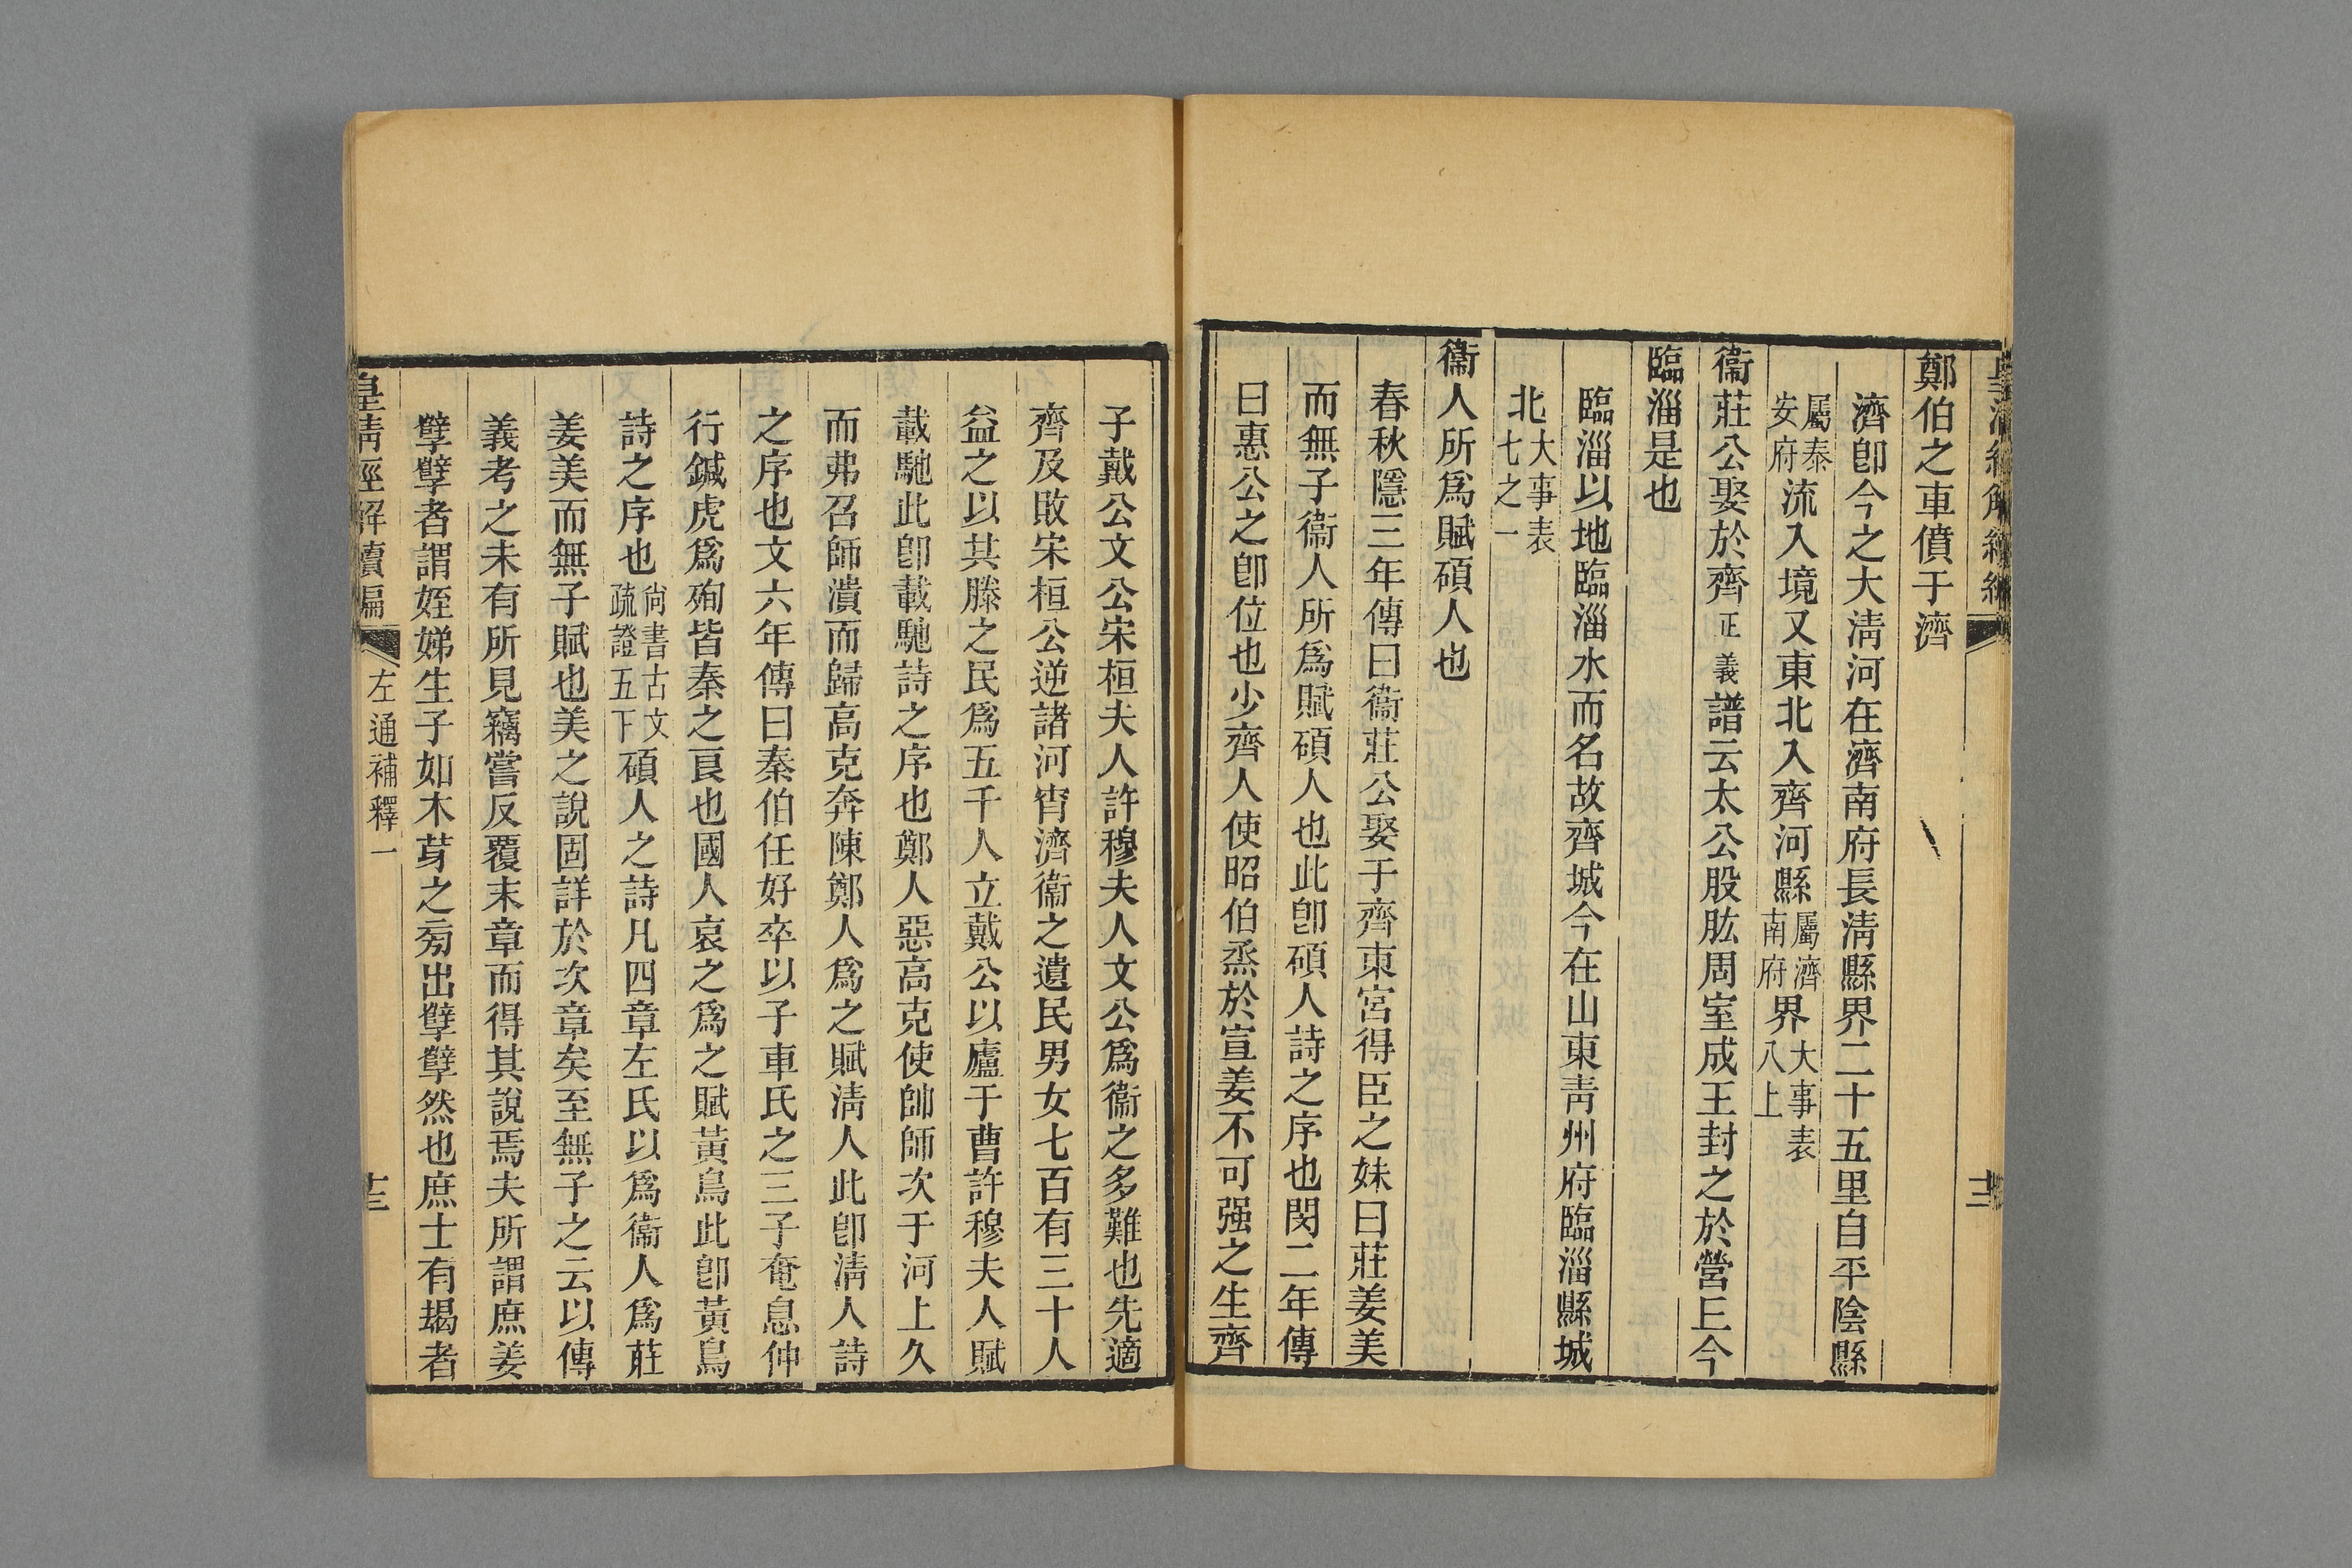 皇清經解續編
十二
鄭伯之車僨于濟
濟卽今之大淸河在濟南府長淸縣界二十五里自平陰縣
屬泰安府流入境又東北入齊河縣屬濟南府界大事表八上
衞莊公娶於齊正義譜云太公股肱周室成王封之於營丘今
臨淄是也
臨淄以地臨淄水而名故齊城今在山東靑州府臨淄縣城
北大事表七之一
衞人所爲賦碩人也
春秋隱三年傳曰衞莊公娶于齊東宮得臣之妹曰莊姜美
而無子衞人所爲賦碩人也此卽碩人詩之序也閔二年傳
曰惠公之卽位也少齊人使昭伯烝於宣姜不可强之生齊
子戴公文公宋桓夫人許穆夫人文公爲衞之多難也先適
齊及敗宋桓公逆諸河宵濟衞之遺民男女七百有三十人
益之以共滕之民爲五千人立戴公以廬于曹許穆夫人賦
載馳此卽載馳詩之序也鄭人惡高克使帥師次于河上久
而弗召師潰而歸高克奔陳鄭人爲之賦淸人此卽淸人詩
之序也文六年傳曰秦伯任好卒以子車氏之三子奄息仲
行鍼虎爲殉皆秦之良也國人哀之爲之賦黃鳥此卽黃鳥
詩之序也尙書古文疏證五下碩人之詩凡四章左氏以爲衞人爲莊
姜美而無子賦也美之說固詳於次章矣至無子之云以傳
義考之未有所見竊嘗反覆末章而得其說焉夫所謂庶姜
孽孽者謂姪娣生子如木芽之旁出孽孽然也庶士有朅者
皇淸經解續編
左通補釋一
十三